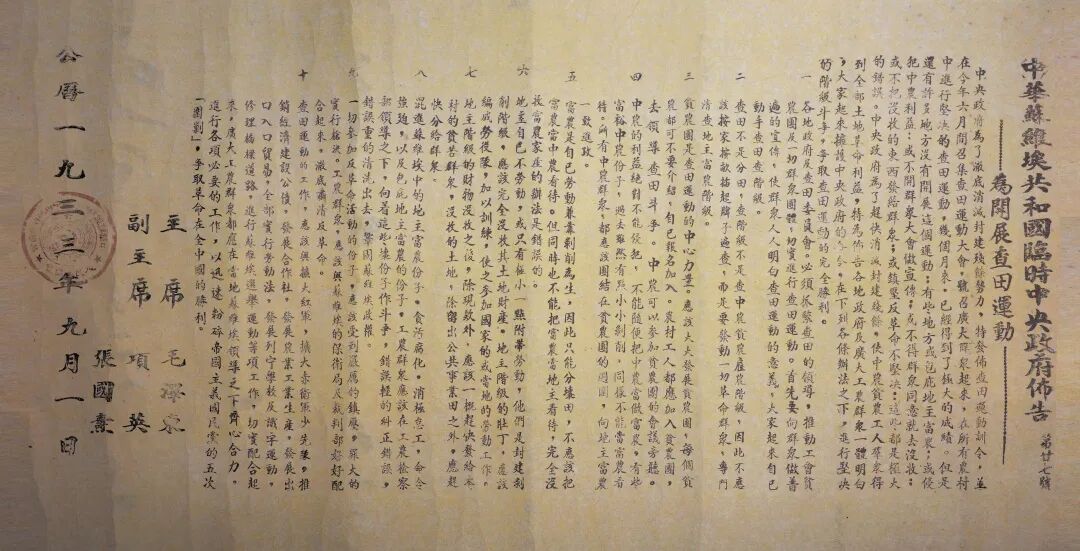 中華蘇維埃共和國臨時中央政府佈告
第廿七號
為開展查田運動
中央政府為了澈底消滅封建殘餘勢力，特發佈查田運動訓令，並
在今年六月間召集查田運動大會，號召廣大群眾起來，在所有農村
中進行堅決的查田運動，幾個月來，已經得到了極大的成績。但是
還有許多地方沒有開展這個運動；有些地方或包庇地主富農；或侵
犯中農利益；或不開群眾大會做宣傳；或不得群眾同意就去沒收；
或不把沒收的東西發給群眾；或鎮壓反革命不堅決；這些都是極大
的錯誤。中央政府為了趕快消滅封建殘餘，使中農貧農工人群眾得
到全部土地革命利益，特為佈告各地政府及廣大工農群眾一體明白
，大家起來擁護中央政府的命令，在下列各條辦法之下，進行堅決
的階級斗爭，爭取查田運動的完全勝利。
一 各地政府及查田委員會。必須抓緊查田的領導，推動工會貧
農團及一切群眾團體，切實進行查田運動。首先要向群眾做普
遍的宣傳，使群眾人人明白查田運動的意義，大家起來自己
動手查田查階級。
二 查田不是分田，查階級不是查中農貧農雇農階級，因此不應
該按家按畝插起牌子遍查，而是要發動一切革命群眾，專門
清查地主富農階級。
三 貧農團是查田運動的中心力量。應該大大發展貧農團，每個貧
農都可不要介紹，自己報名加入。農村工人都應加入貧農團，
去領導查田斗爭。中農可以參加貧農團的會議旁聽。
四 中農的利益絲毫不能侵犯，不能隨便把中農當做富農，有些
富裕中農份子，過去雖然有点小小剝削，同樣不能當富農看
待。所有中農群眾，都應該團結在貧農團的周圍，向地主富農
一致進攻。
五 富農是自己勞動兼靠剝削為生，因此只能分壞田，不應該把
富農當中農看待。但同時也不能把富農當地主看待，完全沒
收富農家產的辦法是錯誤的。
六 地主是自己不勞動，或只有極小一點附帶勞動，他們是封建剝
削階級，應該完全沒收其土地財產。地主階級的壯丁，應該
編成勞役隊，加以訓練，使之參加國家的或當地的勞動工作。
七 沒收地主階級的財物沒收之後，除現款外，應該一概趕快發給本
村的貧苦群眾，沒收的土地，除留出公共事業田之外，應趕
快分給群眾。
八 混進蘇維埃中的地主富農份子。貪污腐化。消極怠工，命令
強迫，以及包庇地主富農的份子。工農群眾應該在工農檢察
部領導之下，向着這些壞份子作斗爭，錯誤輕的糾正錯誤，
錯誤重的清洗出去，鞏固蘇維埃政權。
九 一切參加反革命活動的份子，應該受到嚴厲的鎮壓，罪大的
實行槍決。工農群眾，應該與蘇維埃的保衛局及裁判部好好配
合起來，澈底肅清反革命。
十 查田運動的工作，應該與擴大紅軍，擴大赤衛軍少先隊，推
銷經濟建設公債，發展合作社，發展農業工業生產，發展出
口入口貿易，全部實行勞動法，發展列寧學校及識字運動，
修理橋樑道路，進行蘇維埃選舉運動等項工作，切實配合起
來，廣大工農群眾都應在當地蘇維埃領導之下齊心合力。
進行各項必要的工作，以迅速粉碎帝國主義國民黨的五次
「圍剿」，爭取革命在全中國的勝利。
主席 毛澤東
副主席 項英
張國燾
公曆一九三三年九月一日